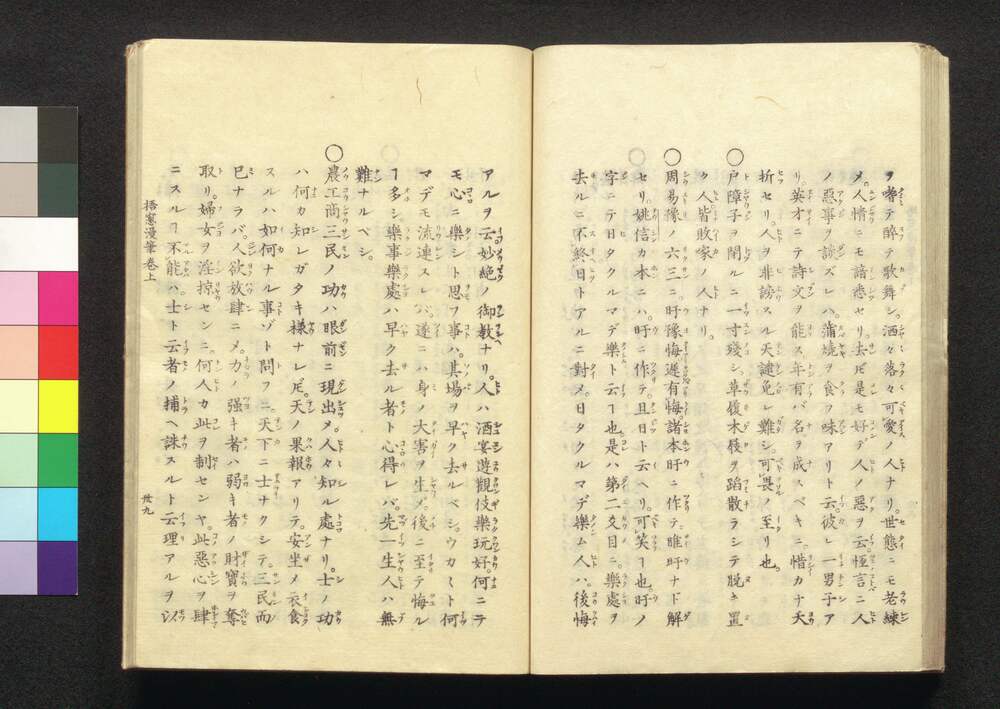 ヲ嗜テ醉テ歌舞シ洒々落々可愛ノ人ナリ。世態ニモ老練
メ。人情ニモ諳悉セリ去𪜈是モ好デ人ノ惡ヲ云恒言ニ人
ノ惡事ヲ談ズレハ蒲燒ヲ食フ味アリト云。彼レ一男子ア
リ。英才ニテ詩文ヲ能ス。年有バ名ヲ成スベキニ。惜カナ夭
折セリ。人ヲ非謗スル天譴免レ難シ。可畏ノ至リ也。
○戸障子ヲ閉ルニ一寸殘シ。草履木屐ヲ蹈散ラシテ脱キ置
ク人皆敗家ノ人ナリ。
○周易豫ノ六三ニ。盱豫悔遲有悔諸本盱ニ作テ。睢盱ナド解
セリ。姚信カ本ニハ。旴ニ作テ。且日ト云ヘリ。可笑ヿ也旴ノ
字ニテ日タクルマデ樂ト云ヿ也。是ハ第二爻目ニ。樂處ヲ
去ルニ不終日トアルニ對メ日タクルマデ樂ム人ハ。後悔
アルヲ云妙絶ノ御教ナリ。人ハ酒宴遊觀伎樂玩好。何ニテ
モ心ニ樂シト思フ事ハ。其場ヲ早ク去ルベシ。ウカ〱ト何
マデモ流連スレハ。遂ニハ身ノ大害ヲ生メ。後ニ至テ悔ル
ヿ多シ。樂事樂處ハ早ク去ル者ト心得レバ。先一生人ハ無
難ナルベシ。
○農工商三民ノ功ハ眼前ニ現出メ。人々知ル處ナリ。士ノ功
ハ何カ知レガタキ樣ナレ𪜈。天ノ果報アリテ。安坐ノ衣食
スルハ如何ナル事ゾト問フニ。天下ニ士ナクシテ。三民而
巳ナラバ。人欲放肆ニメ。力ノ强キ者ハ弱キ者ノ財寶ヲ奪
取リ。婦女ヲ淫掠センニ。何人カ此ヲ制センヤ。此惡心ヲ肆
ニスルヿ不能ハ。士ト云者ノ捕ヘ誅スルト云理アルヲ以
梧窻漫筆卷上
丗九